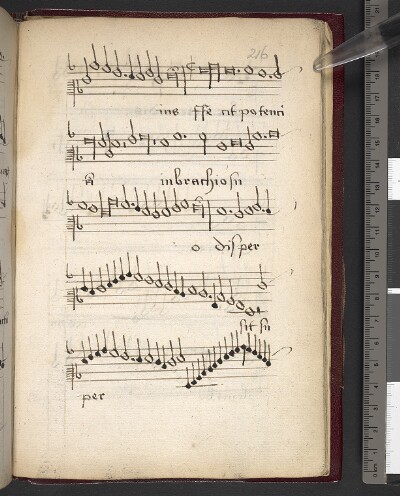 216
ius ffe cit potenci
ā inbrachio su
o disper
sit su
per